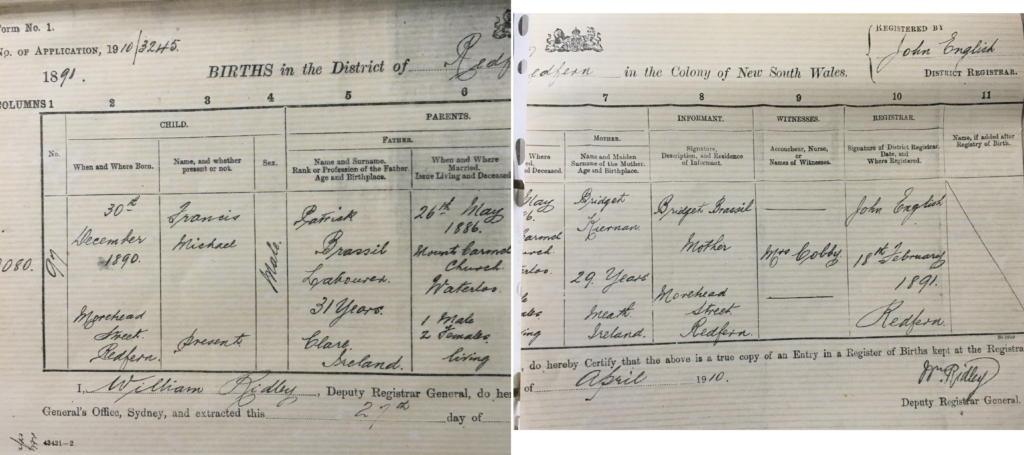 Form No. 1.
No. OF APPLICATION, 1910/3245.
1891. BIRTHS in the District of Redf
COLUMNS 1 2 3 4 5 6
CHILD. PARENTS.
FATHER.
No. When and Where Born. Name, and whether present or not. Sex. Name and Surname. Rank or Profession of the Father. Age and Birthplace. When and Where Married. Issue Living and Deceased
30th Francis Patrick 26th May
1886.
December Michael Brassil Mount Carmel
1890. Church
080. 97 Male. Labourer Waterloo.
31 Years
Morehead 1 Male
Street. present Clare 2 Females
Redfern. Ireland. living
I, William Ridley, Deputy Registrar General, do her
General's Office, Sydney, and extracted this 27th day of
42421—2
REGISTERED BY
John English
DISTRICT REGISTRAR.
edfern in the Colony of New South Wales.
7 8 9 10 11
INFORMANT. WITNESSES. REGISTRAR.
MOTHER.
Where
ed.
d Deceased. Name and Maiden Surname of the Mother. Age and Birthplace. Signature, Description, and Residence of Informant. Accoucheur, Nurse, or Names of Witnesses. Signature of District Registrar, Date, and Where Registered. Name, if added after Registry of Birth.
May Bridget Bridget Brassil John English
6. Kiernan.
armel Mother Mrs Cobby 18th February
urch
erloo. 29 Years 1891.
Morehead
les Meath Street. Redfern.
ing Ireland. Redfern.
, do hereby Certify that the above is a true copy of an Entry in a Register of Births kept at the Registra
of April 1910.
Wm Ridley
Deputy Registrar General.